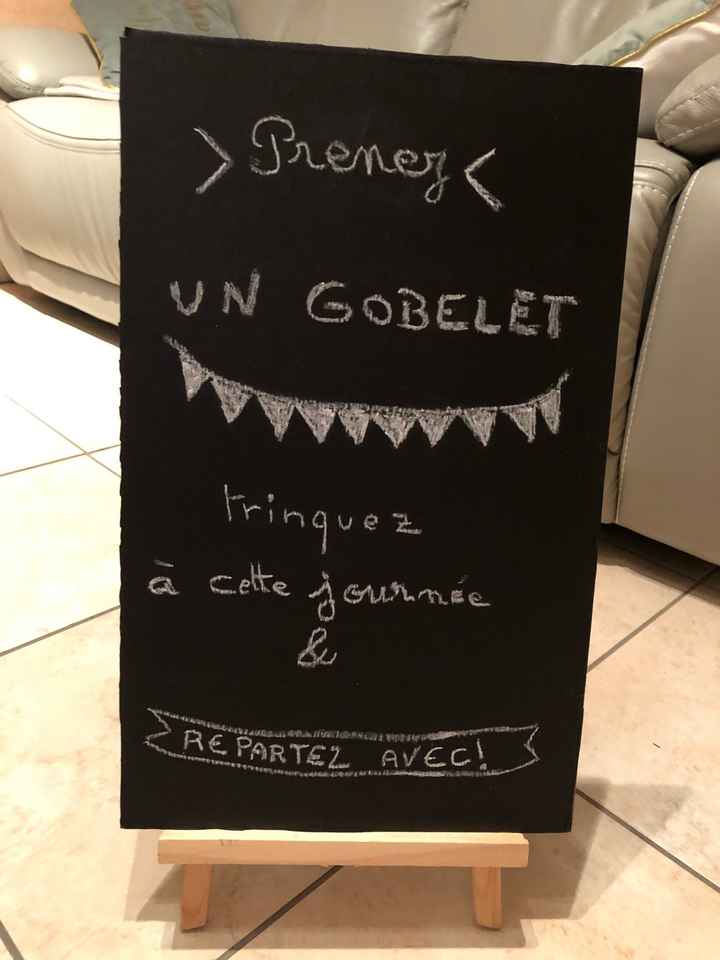 > Prenez <
UN GOBELET
trinquez
à cette journée
&
REPARTEZ AVEC!